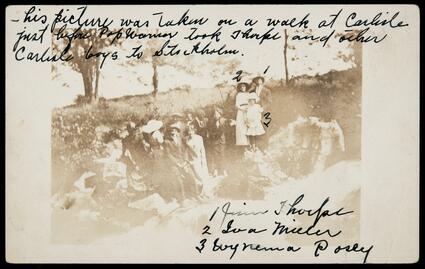 -his picture was taken on a walk at Carlisle
just before Pop Warner took Thorpe and other
Carlisle boys to Stockholm.
2 1
3
1 Jim Thorpe
2 Iva Miller
3 Wynema Posey